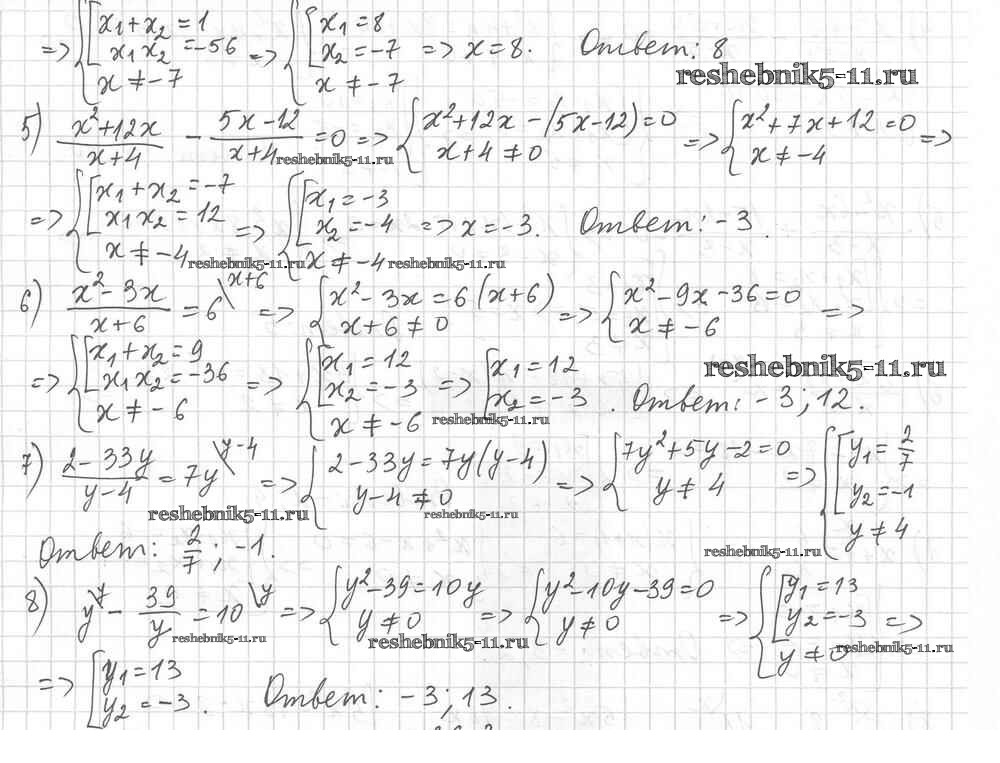 => { [ x₁+x₂=1 x₁x₂=-56 x≠-7 => { [ x₁=8 x₂=-7 x≠-7 => x=8. Ответ: 8
reshebnik5-11.ru
5) (x²+12x)/(x+4) - (5x-12)/(x+4) =0 => { x²+12x-(5x-12)=0 x+4≠0 => { x²+7x+12=0 x≠-4 =>
reshebnik5-11.ru
=> { [ x₁+x₂=-7 x₁x₂=12 x≠-4 => { [ x₁=-3 x₂=-4 x≠-4 => x=-3. Ответ: -3.
reshebnik5-11.ru reshebnik5-11.ru
6) (x²-3x)/(x+6) = 6\x+6 => { x²-3x=6(x+6) x+6≠0 => { x²-9x-36=0 x≠-6 =>
=> { [ x₁+x₂=9 x₁x₂=-36 x≠-6 => { [ x₁=12 x₂=-3 x≠-6 => [ x₁=12 x₂=-3 . Ответ: -3; 12.
reshebnik5-11.ru
reshebnik5-11.ru
7) (2-33y)/(y-4) = 7y\y-4 => { 2-33y=7y(y-4) y-4≠0 => { 7y²+5y-2=0 y≠4 => { [ y₁=2/7 y₂=-1 y≠4
reshebnik5-11.ru reshebnik5-11.ru
reshebnik5-11.ru
Ответ: 2/7; -1.
8) y\y - 39/y = 10\y => { y²-39=10y y≠0 => { y²-10y-39=0 y≠0 => { [ y₁=13 y₂=-3 y≠0 =>
reshebnik5-11.ru reshebnik5-11.ru reshebnik5-11.ru
=> [ y₁=13 y₂=-3 . Ответ: -3; 13.